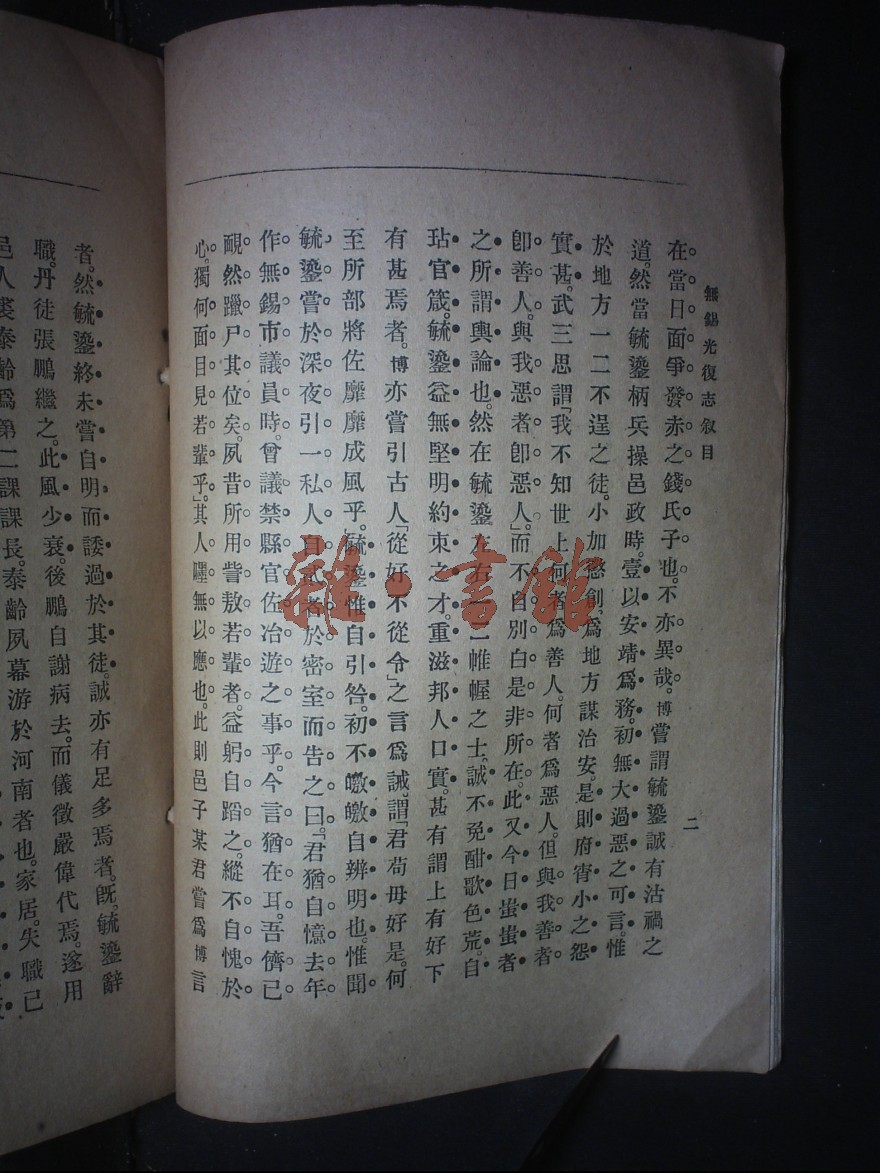 無錫光復志叙目
二
在當日面爭發赤之錢氏子也。不亦異哉。博嘗謂毓鎏誠有沽禍之
道。然當毓鎏柄兵操邑政時。壹以安靖爲務。初無大過惡之可言。惟
於地方一二不逞之徒。小加懲創、爲地方謀治安。是則府宵小之怨
實甚。武三思謂「我不知世上何者爲善人。何者爲惡人。但與我善者
卽善人。與我惡者卽惡人。」而不自別白是非所在。此又今日蚩蚩者
之所謂輿論也。然在毓鎏左右一二帷幄之士。誠不免酣歌色荒。自
玷官箴。毓鎏益無堅明約束之才。重滋邦人口實。甚有謂上有好下
有甚焉者。博亦嘗引古人「從好不從令」之言爲誡。謂「君苟毋好是。何
至所部將佐靡靡成風乎。」毓鎏惟自引咎。初不曒曒自辨明也。惟聞
毓鎏嘗於深夜引一私人自貳者於密室而告之曰。「君猶自憶去年
作無錫市議員時。曾議禁縣官佐冶遊之事乎。今言猶在耳。吾儕已
靦然躐尸其位矣。夙昔所用訾敖若輩者。益躬自蹈之。縱不自愧於
心。獨何面目見若輩乎。」其人嚜無以應也。此則邑子某君嘗爲博言
者。然毓鎏終未嘗自明而諉過於其徒。誠亦有足多焉者。旣。毓鎏辭
職。丹徒張鵬繼之。此風少衰。後鵬自謝病去。而儀徵嚴偉代焉。遂用
邑人裘泰齡爲第二課課長。泰齡夙幕游於河南者也。家居。失職已
雜·書館